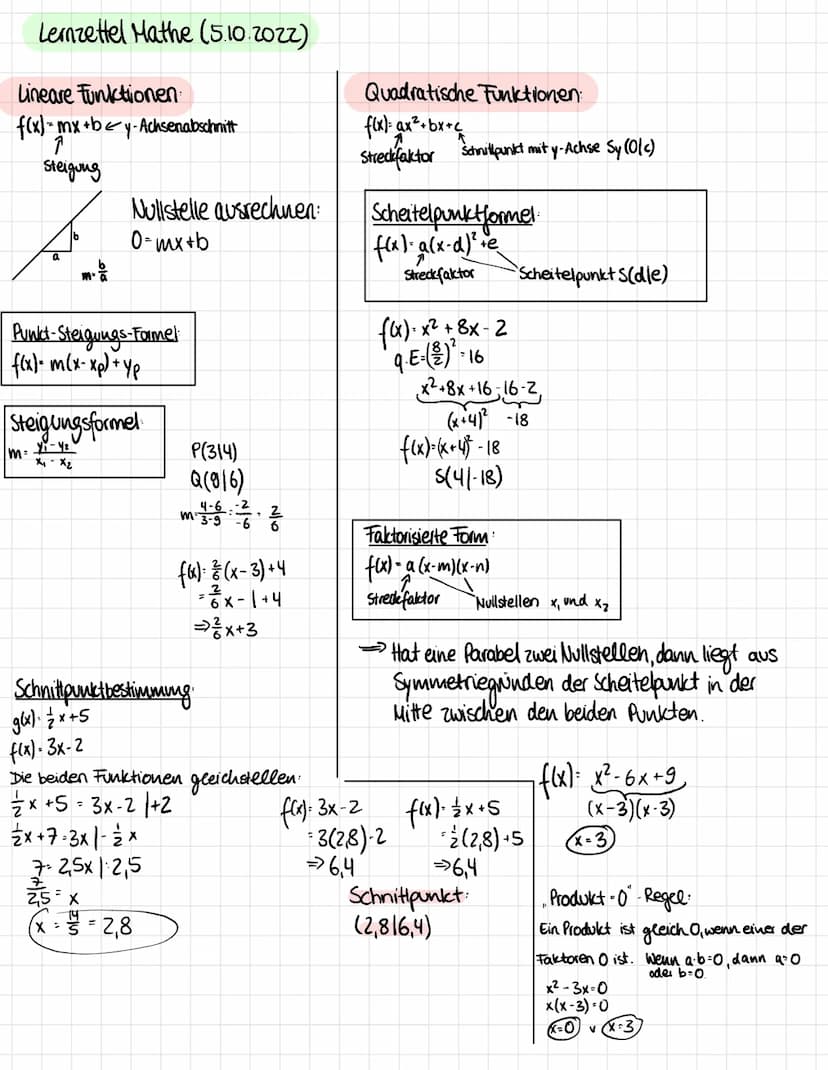 Lernzettel Mathe (5.10.2022)
Lineare Funktionen:
f(x)=mx+b ← y-Achsenabschnitt
↑
Steigung
b
a
m=b/a
Nullstelle ausrechnen:
0=mx+b
Punkt-Steigungs-Formel:
f(x)= m(x-xₚ)+yₚ
Steigungsformel:
m= (y₁-y₂)/(x₁-x₂)
P(3|4)
Q(9|6)
m=(4-6)/(3-9)=(-2)/(-6)=2/6
f(x)=2/6(x-3)+4
=2/6x-1+4
⇒2/6x+3
Schnittpunktbestimmung:
g(x)=1/2x+5
f(x)=3x-2
Die beiden Funktionen gleichstellen:
1/2x+5=3x-2 |+2
1/2x+7=3x |-1/2x
7=2,5x |:2,5
7/2,5=x
x=14/5=2,8
f(x)=3x-2
=3(2,8)-2
⇒6,4
f(x)=1/2x+5
=1/2(2,8)+5
⇒6,4
Schnittpunkt:
(2,8|6,4)
Quadratische Funktionen:
f(x)=ax²+bx+c
Streckfaktor
Schnittpunkt mit y-Achse Sy(0|c)
Scheitelpunktformel:
f(x)=a(x-d)²+e
Streckfaktor
Scheitelpunkt S(d|e)
f(x)=x²+8x-2
q.E=(8/2)²=16
x²+8x+16-16-2
(x+4)² -18
f(x)=(x+4)²-18
S(4|-18)
Faktorisierte Form:
f(x)=a(x-m)(x-n)
Streckfaktor
Nullstellen x₁ und x₂
⇒ Hat eine Parabel zwei Nullstellen, dann liegt aus
Symmetriegründen der Scheitelpunkt in der
Mitte zwischen den beiden Punkten.
f(x)=x²-6x+9
(x-3)(x-3)
x=3
„Produkt=0"-Regel:
Ein Produkt ist gleich 0, wenn einer der
Faktoren 0 ist. Wenn a·b=0, dann a=0
oder b=0
x²-3x=0
x(x-3)=0
x=0 v x=3